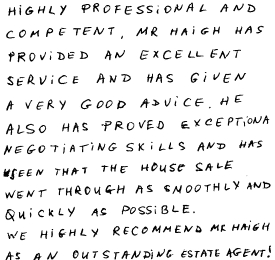 HIGHLY PROFESSIONAL AND
COMPETENT, MR HAIGH HAS
PROVIDED AN EXCELLENT
SERVICE AND HAS GIVEN
A VERY GOOD ADVICE. HE
ALSO HAS PROVED EXCEPTIONA
NEGOTIATING SKILLS AND HAS
SEEN THAT THE HOUSE SALE
WENT THROUGH AS SMOOTHLY AND
QUICKLY AS POSSIBLE.
WE HIGHLY RECOMMEND MR HAIGH
AS AN OUTSTANDING ESTATE AGENT!